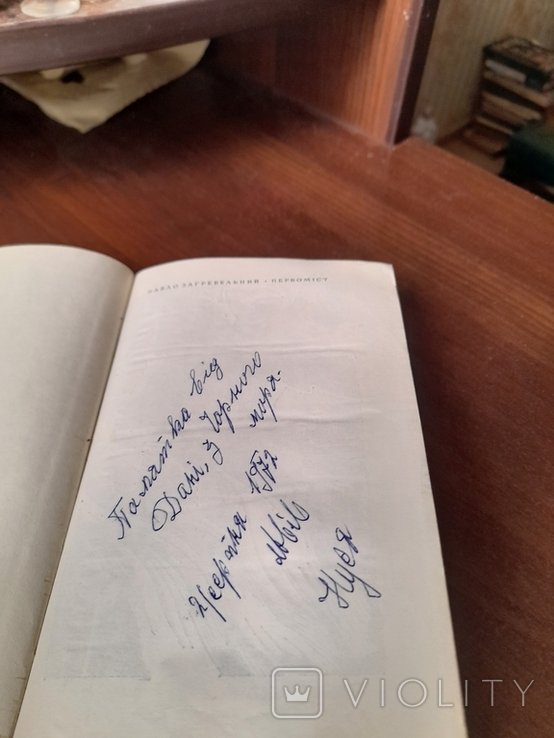 ПАВЛО ЗАГРЕБЕЛЬНИЙ • ПЕРВОМІСТ
Памятка від
Дані, з Чорного
моря.
1972
Львів
VIOLITY